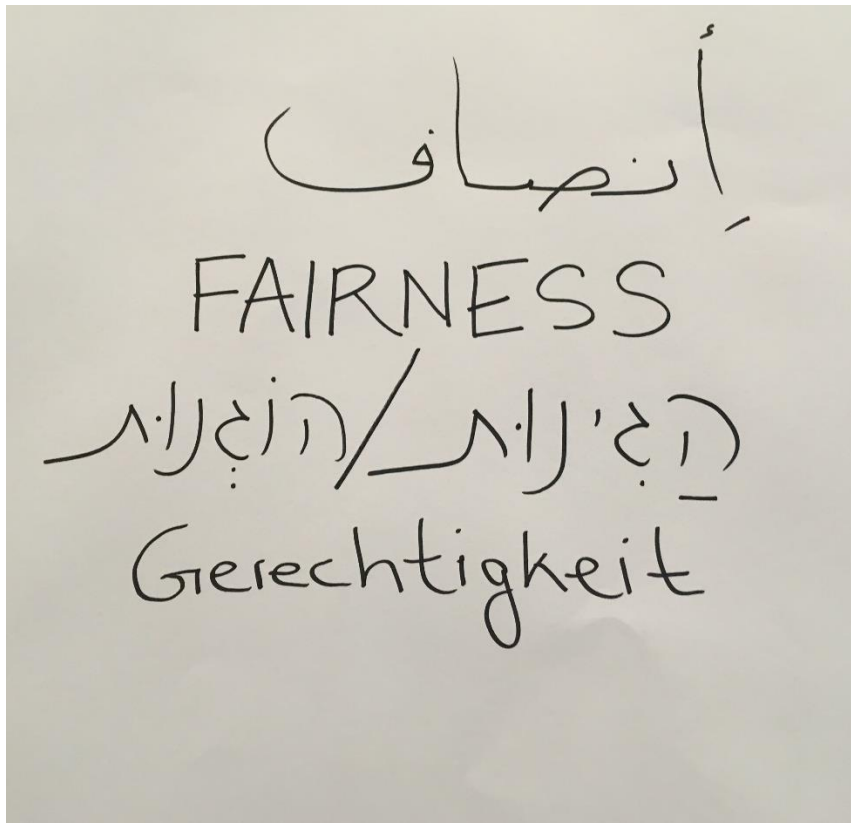 أِنصاف
FAIRNESS
הַגִּינוּת/הוֹגְנוּת
Gerechtigkeit